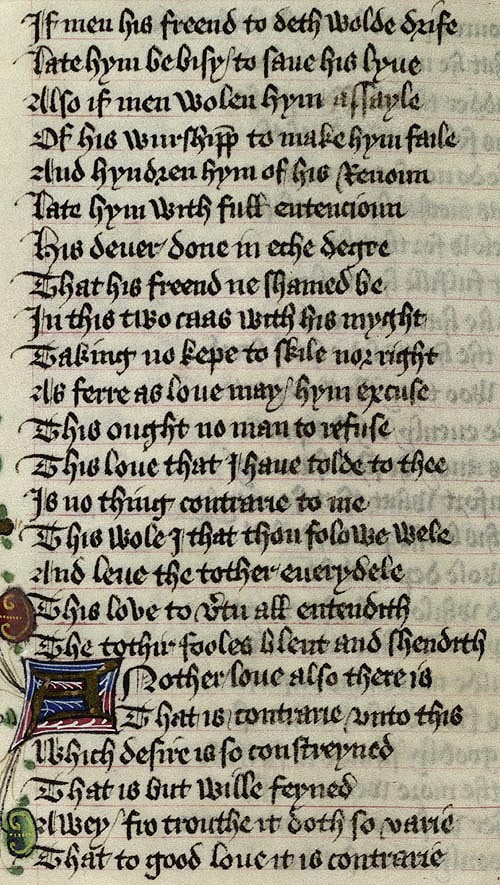 If men his freend to deth wolde drife
Late hym be bisy / to saue his lyue
Also if men wolen hym assayle
Of his wurshipp to make hym faile
And hyndren hym of his Renoun
Late hym with full entencioun
His deuer done in eche degre
That his freend ne shamed be
In this two caas with his myght
Taking no kepe to skile nor right
As ferre as loue may / hym excuse
This ought no man to refuse
This loue that I haue tolde to thee
Is no thing contrarie to me
This wole I that thou folowe wele
And leue the tother euerydele
This love to vtu all entendith
The tothir fooles blent and shendith
A Nother loue also there is
That is contrarie vnto this
Which desire is so constreyned
That is but wille feyned
Awey / fro trouthe it doth so varie
That to good loue it is contrarie